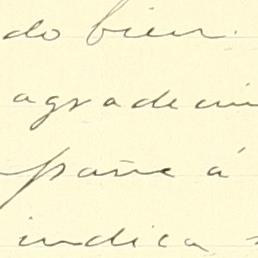 do bien.
agradeci
pañe á
indica